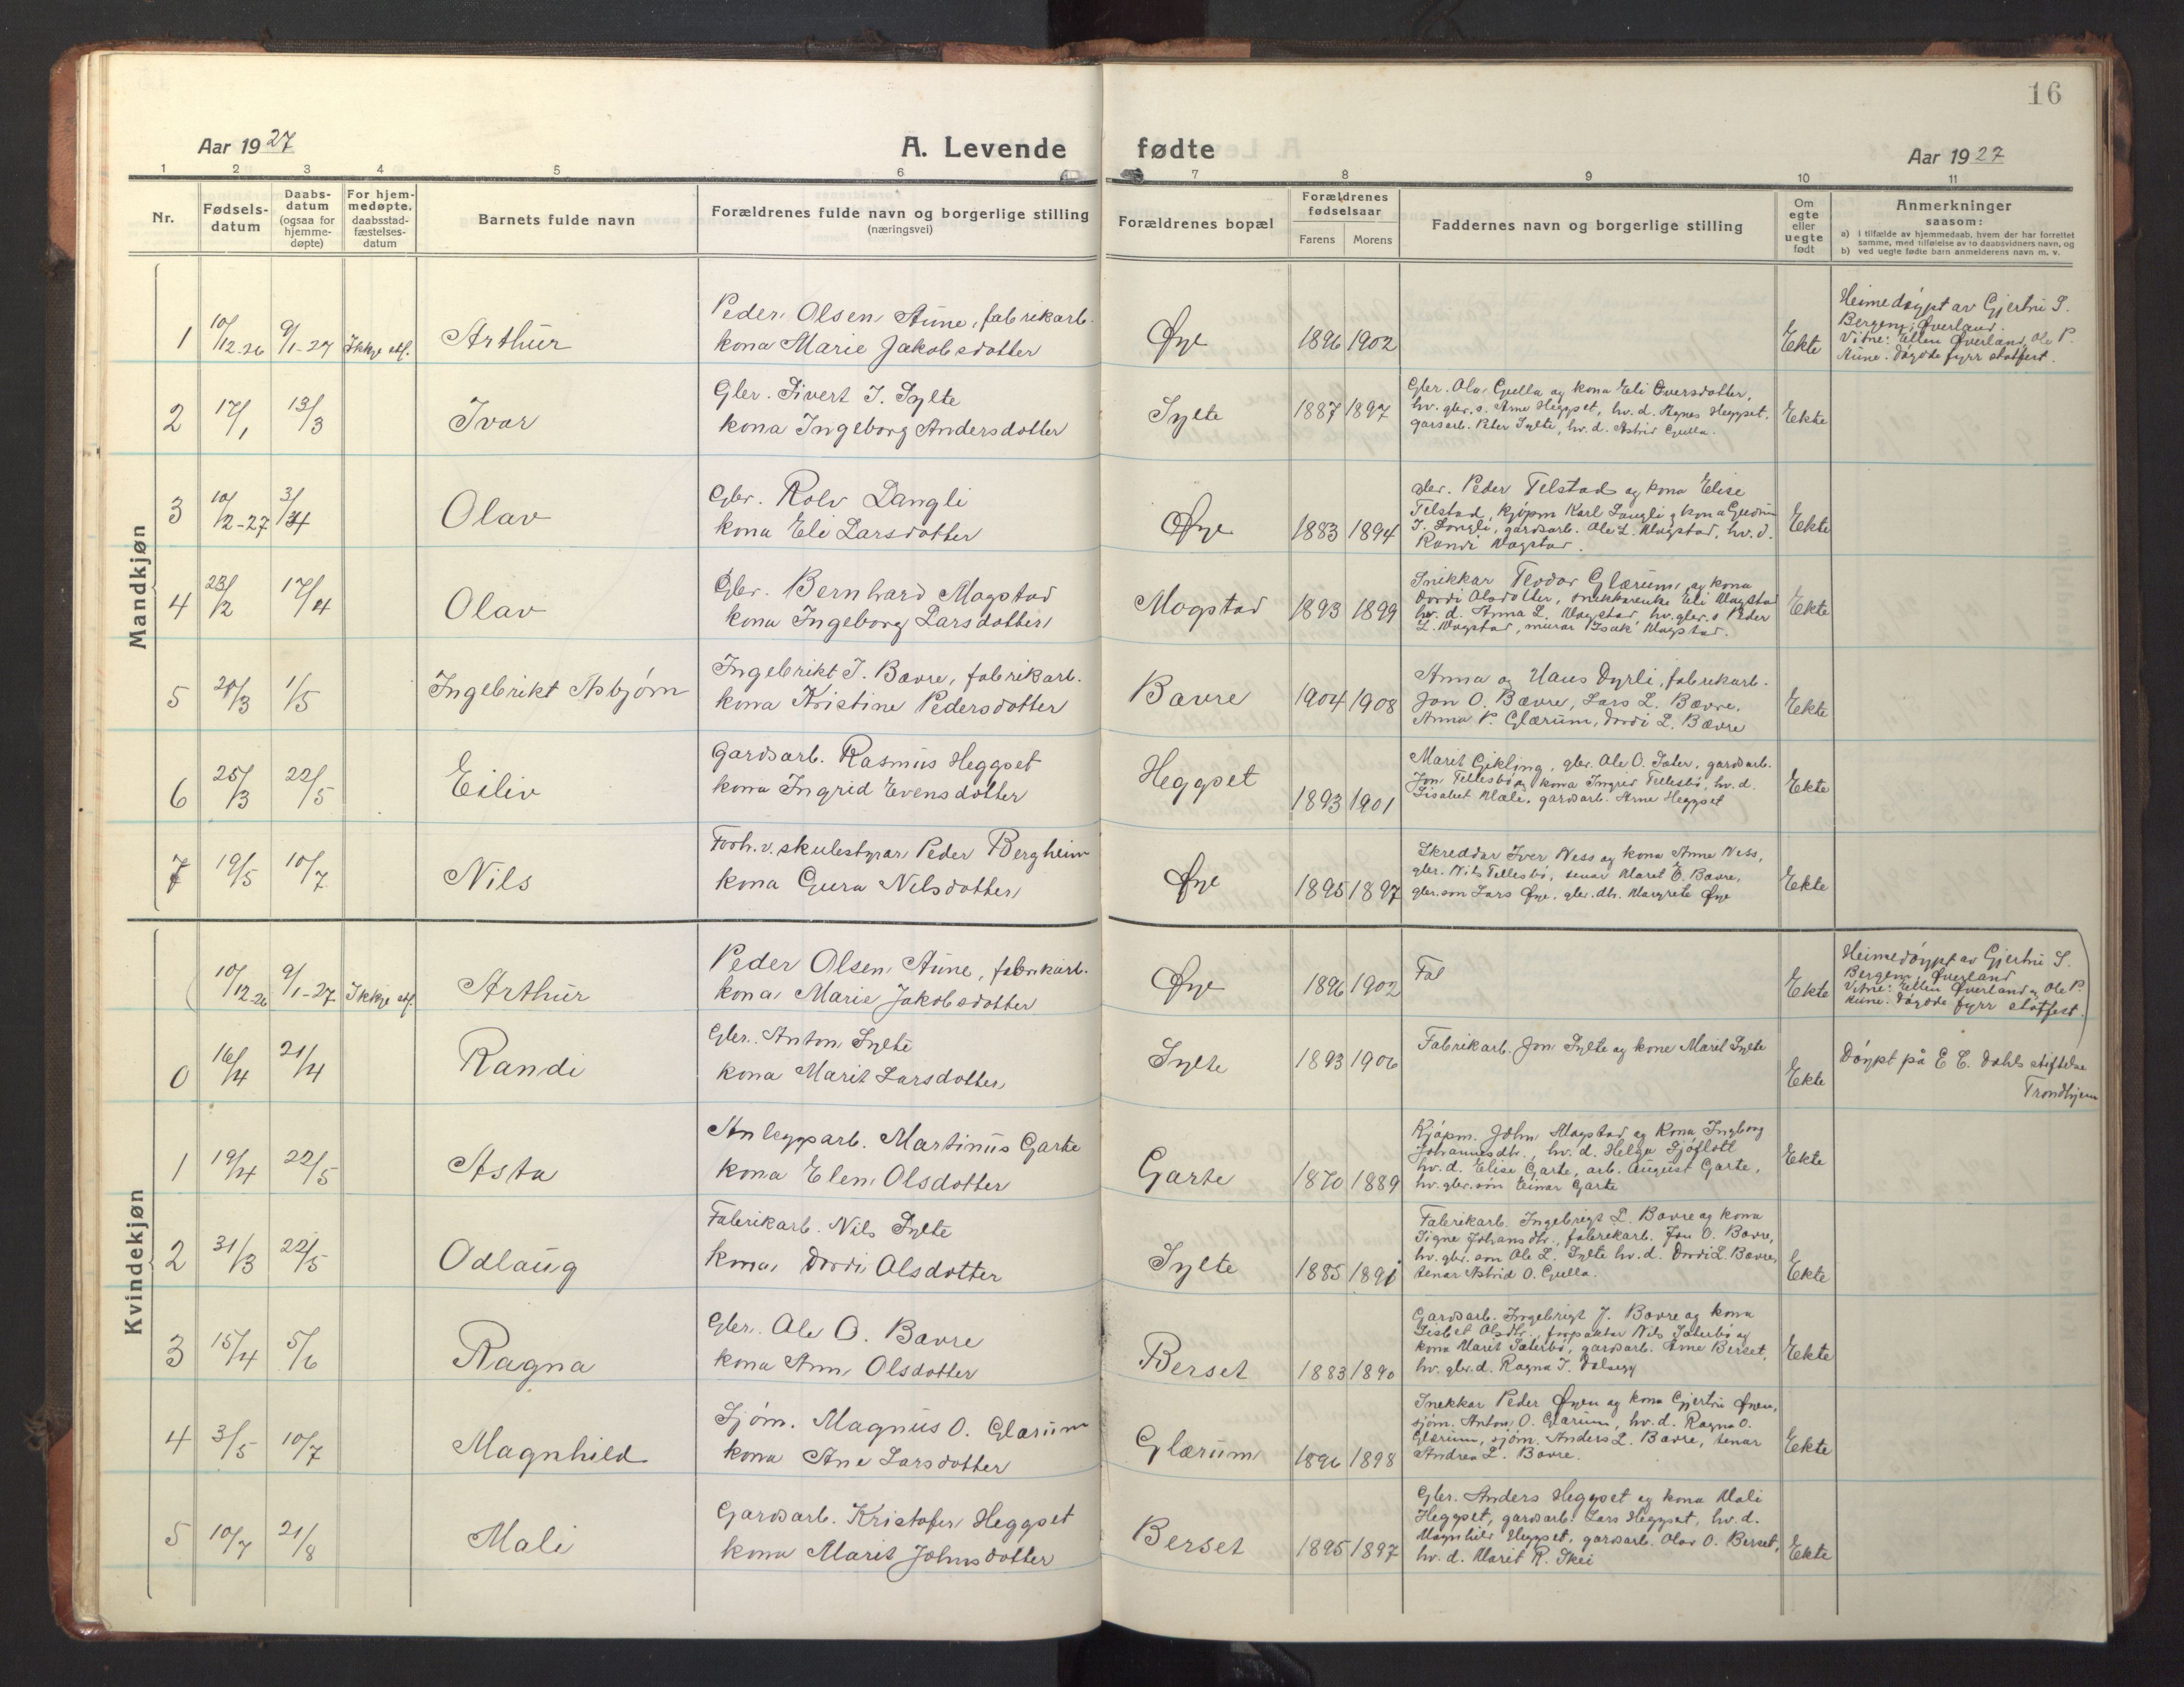 16
Aar 1927
A. Levende
fødte
Aar 1927
1 2 3 4 5 6 7 8 9 10 11
Nr.
Fødsels-
datum
Daabs-
datum
(ogsaa for
hjemme-
døpte)
For hjem-
medøpte.
daabsstad-
fæstelses-
datum
Barnets fulde navn
Forældrenes fulde navn og borgerlige stilling
(næringsvei)
Forældrenes bopæl
Forældrenes
fødselsaar
Farens Morens
Faddernes navn og borgerlige stilling
Om
egte
eller
uegte
født
Anmerkninger
saasom:
a) i tilfælde av hjemmedaab, hvem der har forrettet
samme, med tilføielse av to daabsvidners navn, og
b) ved uegte fødte barn anmelderens navn m. v.
Mandkjøn
1 10/12-26 9/1-27 Ikkje stf. Arthur
Peder Olsen Aune, fabrikarb.
kona Marie Jakobsdotter
Øye 1896 1902 Ekte
Heimedøypt av Gjertru S.
Bergem, Øverland.
Vitne: Ellen Øverland, Ole P.
Aune. Døyde fyrr statfest.
2 17/1 13/3 Ivar
Gbr. Sivert I. Sylte
kona Ingeborg Andersdotter
Sylte 1887 1897
Gbr. Ola Gulla og kona Eli Oversdotter,
hv. gbr. s. Arne Heggset, hv. d. Agnes Heggset,
garsarb. Peter Sylte, hv. d. Astrid Gulla.
Ekte
3 10/2-27 3/4 Olav
Gbr. Rolv Langli
kona Eli Larsdotter
Øye 1883 1894
Gbr. Peder Telstad og kona Elise
Telstad, kjøpm Karl Langli og kona Gudrun
I. Langli, gardsarb. Ole L. Mogstad, hv. d.
Randi Mogstad.
Ekte
4 23/2 17/4 Olav
Gbr. Bernhard Mogstad
kona Ingeborg Larsdotter
Mogstad 1893 1899
Snikkar Teodor Glærum og kona
Dordi Olsdotter, snikkarenke Eli Mogstad
hv. d. Anna L. Mogstad, hv. gbr. s Peder
L. Mogstad, murar Isak Mogstad.
Ekte
5 20/3 1/5 Ingebrikt Asbjørn
Ingebrikt J. Bævre, fabrikarb.
kona Kristine Pedersdotter
Bævre 1904 1908
Anna og Hans Dyrli, fabrikarb.
Jon O. Bævre, Lars L. Bævre.
Anna P. Glærum, Dordi L. Bævre
Ekte
6 25/3 22/5 Eiliv
Gardsarb. Rasmus Heggset
kona Ingrid Evensdotter
Heggset 1893 1901
Marit Gikling, gbr. Ole O. Sæter, gardsarb.
Jon Tellesbø og kona Ingrid Tellesbø, hv. d.
Lisabet Mæle, gardsarb. Arne Heggset
Ekte
7 19/5 10/7 Nils
Forh. v. skulestyrar Peder Bergheim
kona Guru Nilsdotter
Øye 1895 1897
Skreddar Iver Ness og kona Anne Ness,
gbr. Nils Tellesbø, tenar Maret E. Bævre,
gbr. son Lars Øye, gbr. dtr. Margrete Øye
Ekte
Kvindekjøn
10/12-26 9/1-27 Ikkje stf. Arthur
Peder Olsen Aune, fabrikarb.
kona Marie Jakobsdotter
Øye 1896 1902 Fal Ekte
Heimedøypt av Gjertru S.
Bergem, Øverland
Vitne: Ellen Øverland og Ole P.
Aune. Døyde fyrr statfest.
0 16/4 21/4 Randi
Gbr. Anton Sylte
kona Marit Larsdotter
Sylte 1893 1906
Fabrikarb. Jon Sylte og kone Marit Sylte
Ekte
Døypt på E. C. Dahls stiftelse
Trondhjem
1 19/4 22/5 Asta
Anleggsarb. Martinus Garte
kona Elen Olsdotter
Garte 1870 1889
Kjøpm. John Mogstad og kona Ingborg
Johannesdtr., hv. d. Helga Sjøflott
hv. d. Elise Garte, arb. August Garte,
hv. gbr. søn Einar Garte
Ekte
2 31/3 22/5 Odlaug
Fabrikarb. Nils Sylte
kona Dordi Olsdotter
Sylte 1885 1891
Fabrikarb. Ingebrigt L. Bævre og kona
Signe Johansdtr., fabrikarb. Jon O. Bævre,
hv. gbr. son Ole L. Sylte hv. d. Dordi L. Bævre,
tenar Astrid O. Gulla.
Ekte
3 15/4 5/6 Ragna
Gbr. Ole O. Bævre
kona Ann Olsdotter
Berset 1883 1890
Gardsarb. Ingebrigt J. Bævre og kona
Lisbet Olsdtr., forpaktar Nils Sæterbø og
kona Marit Sæterbø, gardsarb. Arne Berset,
hv. gbr. d. Ragna I. Dalsegg
Ekte
4 3/5 10/7 Magnhild
Sjøm. Magnus O. Glærum
kona Ane Larsdotter
Glærum 1896 1898
Snekkar Peder Øyen og kona Gjertru Øyen,
sjøm. Anton O. Glærum, hv. d. Ragna O.
Glærum, sjøm. Anders L. Bævre, tenar
Andrea L. Bævre.
Ekte
5 10/7 21/8 Mali
Gardsarb. Kristofer Heggset
kona Marit Johnsdotter
Berset 1895 1897
Gbr. Anders Heggset og kona Mali
Heggset, gardsarb. Lars Heggset, hv. d.
Magnhild Heggset, gardsarb. Olav O. Berset,
hv. d. Marit R. Skei
Ekte